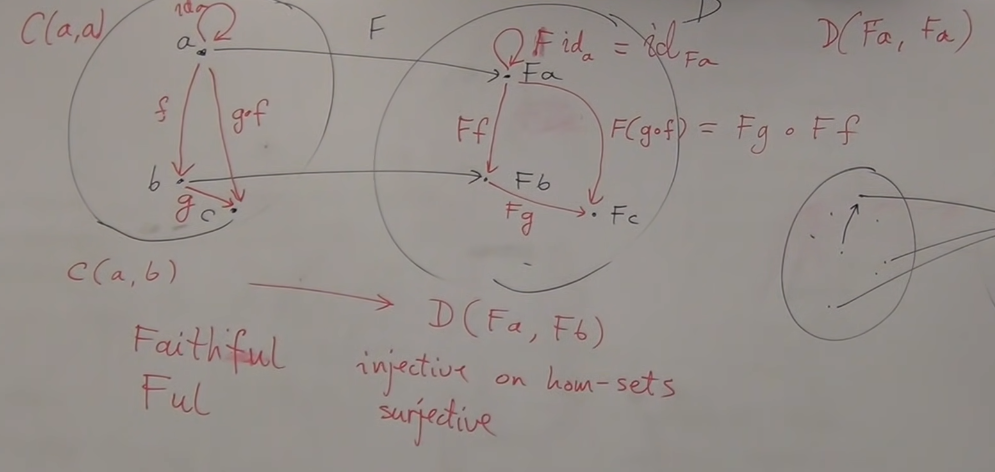 C(a,a)
id_a
F
D
F id_a = id_Fa
D(Fa, Fa)
a
Fa
f
g∘f
Ff
F(g∘f) = Fg ∘ Ff
b
Fb
g
c
Fg
Fc
C(a,b)
D(Fa, Fb)
Faithful
injective on hom-sets
Ful
surjective